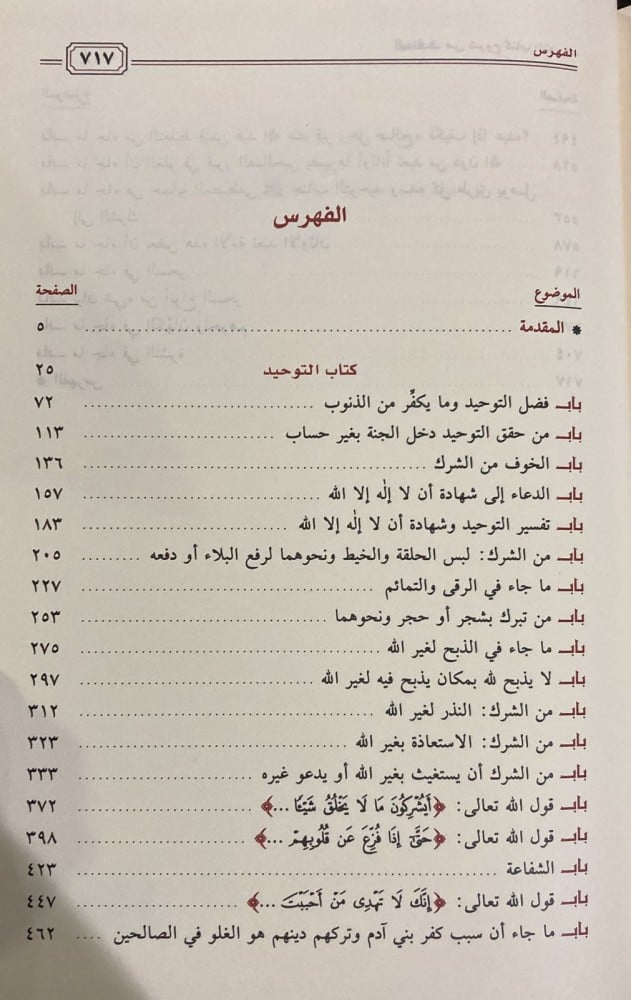 الفهرس
٧١٧
الفهرس
الموضوع الصفحة
* المقدمة ........ ٥
كتاب التوحيد ٢٥
باب فضل التوحيد وما يكفِّر من الذنوب ........ ٧٢
باب من حقق التوحيد دخل الجنة بغير حساب ........ ١١٣
باب الخوف من الشرك ........ ١٣٦
باب الدعاء إلى شهادة أن لا إلٰه إلا الله ........ ١٥٧
باب تفسير التوحيد وشهادة أن لا إلٰه إلا الله ........ ١٨٣
باب من الشرك: لبس الحلقة والخيط ونحوهما لرفع البلاء أو دفعه ........ ٢٠٥
باب ما جاء في الرقى والتمائم ........ ٢٢٧
باب من تبرك بشجر أو حجر ونحوهما ........ ٢٥٣
باب ما جاء في الذبح لغير الله ........ ٢٧٥
باب لا يذبح لله بمكان يذبح فيه لغير الله ........ ٢٩٧
باب من الشرك: النذر لغير الله ........ ٣١٢
باب من الشرك: الاستعاذة بغير الله ........ ٣٢٣
باب من الشرك أن يستغيث بغير الله أو يدعو غيره ........ ٣٣٣
باب قول الله تعالى: ﴿أَيُشْرِكُونَ مَا لَا يَخْلُقُ شَيْئًا ...﴾ ........ ٣٧٢
باب قول الله تعالى: ﴿حَتَّىٰ إِذَا فُزِّعَ عَن قُلُوبِهِمْ ...﴾ ........ ٣٩٨
باب الشفاعة ........ ٤٢٣
باب قول الله تعالى: ﴿إِنَّكَ لَا تَهْدِى مَنْ أَحْبَبْتَ ...﴾ ........ ٤٤٧
باب ما جاء أن سبب كفر بني آدم وتركهم دينهم هو الغلو في الصالحين .... ٤٦٢